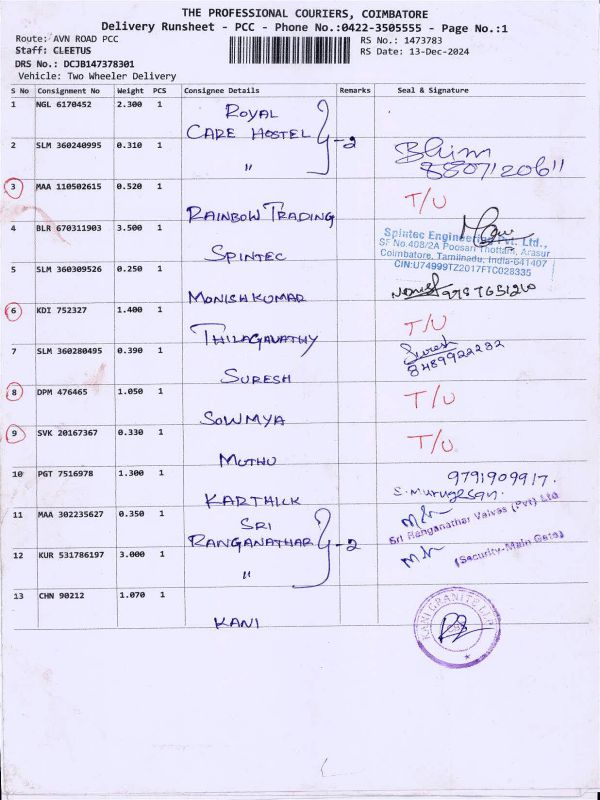 THE PROFESSIONAL COURIERS, COIMBATORE
Delivery Runsheet - PCC - Phone No.:0422-3505555 - Page No.:1
Route: AVN ROAD PCC
RS No.: 1473783
Staff: CLEETUS
RS Date: 13-Dec-2024
DRS No.: DCJB147378301
Vehicle: Two Wheeler Delivery
S No Consignment No Weight PCS Consignee Details Remarks Seal & Signature
1 NGL 6170452 2.300 1 ROYAL
CARE HOSTEL -2
2 SLM 360240995 0.310 1 "
Bhim
3 MAA 110502615 0.520 1 T/U
RAINBOW TRADING
4 BLR 670311903 3.500 1
Spintec Engineering Pvt. Ltd.,
SF No.408/2A Poosari Thottam, Arasur
Coimbatore, Tamilnadu, India-641407
CIN:U74999TZ2017FTC028335
SPINTEC
5 SLM 360309526 0.250 1
MONISHKUMAR
6 KDI 752327 1.400 1 T/U
THILAGAVATHY
7 SLM 360280495 0.390 1 Suresh
8489922232
SURESH
8 DPM 476465 1.050 1 T/U
SOWMYA
9 SVK 20167367 0.330 1 T/U
MUTHU
10 PGT 7516978 1.300 1 9791909917.
S. Murugesan.
KARTHICK
11 MAA 302235627 0.350 1 SRI
RANGANATHAR -2
Sri Ranganathar Valves (Pvt) Ltd
(Security-Main Gate)
12 KUR 531786197 3.000 1 "
13 CHN 90212 1.070 1
KANI GRANITE LLP
KANI